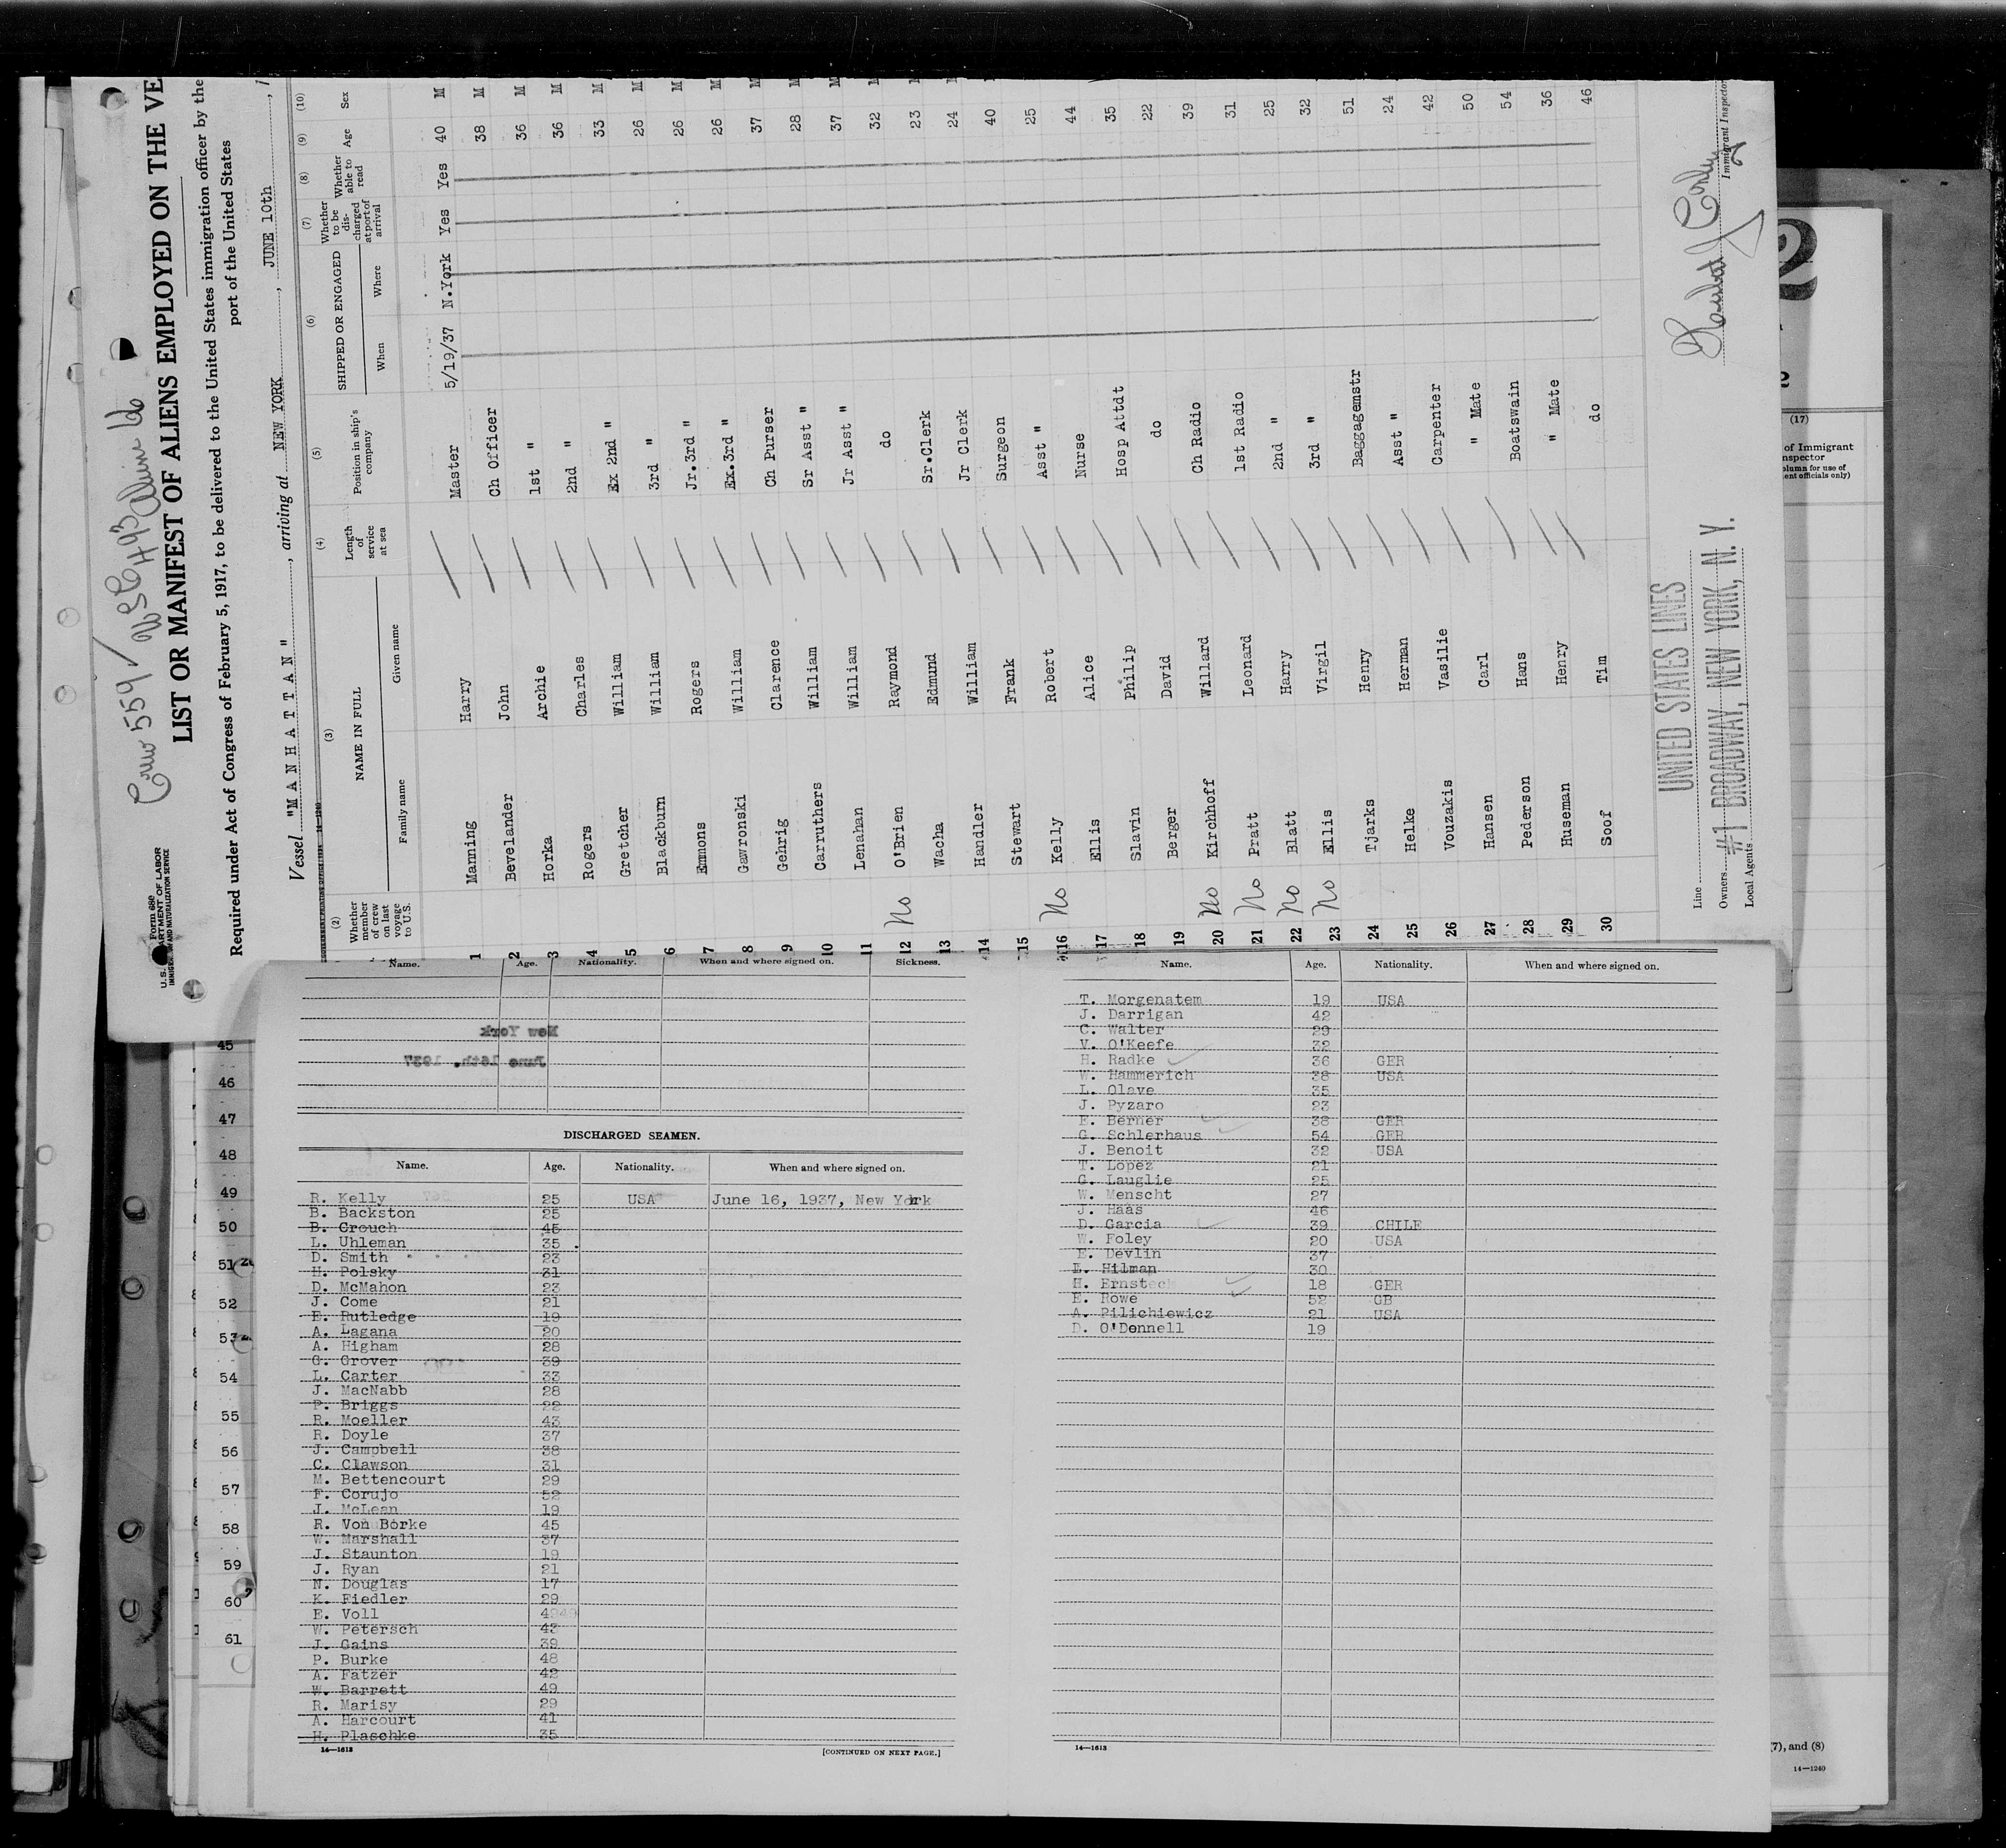 Crew 559 ✓ USC 493 Alien 66
U.S. DEPARTMENT OF LABOR
IMMIGRATION AND NATURALIZATION SERVICE
Form 680
LIST OR MANIFEST OF ALIENS EMPLOYED ON THE VE
Required under Act of Congress of February 5, 1917, to be delivered to the United States immigration officer by the
port of the United States
Vessel "MANHATTAN", arriving at NEW YORK, JUNE 10th, 1
(2) (3) (4) (5) (6) (7) (8) (9) (10)
Whether member of crew on last voyage to U.S. NAME IN FULL Family name Given name Length of service at sea Position in ship's company SHIPPED OR ENGAGED When Where Whether to be discharged at port of arrival Whether able to read Age Sex
1 Manning Harry Master 5/19/37 N.York Yes Yes 40 M
2 Bevelander John Ch Officer 38 M
3 Horka Archie 1st " 36 M
4 Rogers Charles 2nd " 36 M
5 Gretcher William Ex 2nd " 33 M
6 Blackburn William 3rd " 26 M
7 Emmons Rogers Jr.3rd " 26 M
8 Gawronski William Ex.3rd " 26 M
9 Gehrig Clarence Ch Purser 37 M
10 Carruthers William Sr Asst " 28 M
11 Lenahan William Jr Asst " 37 M
12 No O'Brien Raymond do 32
13 Wacha Edmund Sr.Clerk 23
14 Handler William Jr Clerk 24
15 Stewart Frank Surgeon 40
16 No Kelly Robert Asst " 25
17 Ellis Alice Nurse 44
18 Slavin Philip Hosp Attdt 35
19 Berger David do 22
20 No Kirchhoff Willard Ch Radio 39
21 No Pratt Leonard 1st Radio 31
22 No Blatt Harry 2nd " 25
23 No Ellis Virgil 3rd " 32
24 Tjarks Henry Baggagemstr 51
25 Helke Herman Asst " 24
26 Vouzakis Vasilie Carpenter 42
27 Hansen Carl " Mate 50
28 Pederson Hans Boatswain 54
29 Huseman Henry " Mate 36
30 Soof Tim do 46
Line UNITED STATES LINES
Owners #1 BROADWAY, NEW YORK, N. Y.
Local Agents
Immigrant Inspector
2
(17)
of Immigrant
nspector
olumn for use of
ent officials only)
(7), and (8)
14—1240
45
46
47
48
49
50
51
52
53
54
55
56
57
58
59
60
61
Name. Age. Nationality. When and where signed on. Sickness.
New York
June 16th, 1937
DISCHARGED SEAMEN.
Name. Age. Nationality. When and where signed on.
R. Kelly 25 USA June 16, 1937, New York
B. Backston 25
B. Crouch 45
L. Uhleman 35
D. Smith 23
H. Polsky 31
D. McMahon 23
J. Come 21
E. Rutledge 19
A. Lagana 20
A. Higham 28
G. Grover 39
L. Carter 33
J. MacNabb 28
P. Briggs 22
R. Moeller 43
R. Doyle 37
J. Campbell 38
C. Clawson 31
M. Bettencourt 29
F. Corujo 52
J. McLean 19
R. Von Borke 45
W. Marshall 37
J. Staunton 19
J. Ryan 21
N. Douglas 17
K. Fiedler 29
E. Voll
W. Petersch 43
J. Gains 39
P. Burke 48
A. Fatzer 42
W. Barrett 49
R. Marisy 29
A. Harcourt 41
H. Plaschke 35
14—1613 [CONTINUED ON NEXT PAGE.]
Name. Age. Nationality. When and where signed on.
T. Morgenatem 19 USA
J. Darrigan 42
C. Walter 29
V. O'Keefe 32
H. Radke 36 GER
W. Hammerich 38 USA
L. Olave 35
J. Pyzaro 23
E. Berner 38 GER
G. Schlerhaus 54 GER
J. Benoit 32 USA
T. Lopez 21
G. Lauglie 25
W. Menscht 27
J. Haas 46
D. Garcia 39 CHILE
W. Foley 20 USA
E. Devlin 37
E. Hilman 30
H. Ernsteck 18 GER
E. Rowe 52 GB
A. Pilichiewicz 21 USA
D. O'Donnell 19
14—1613